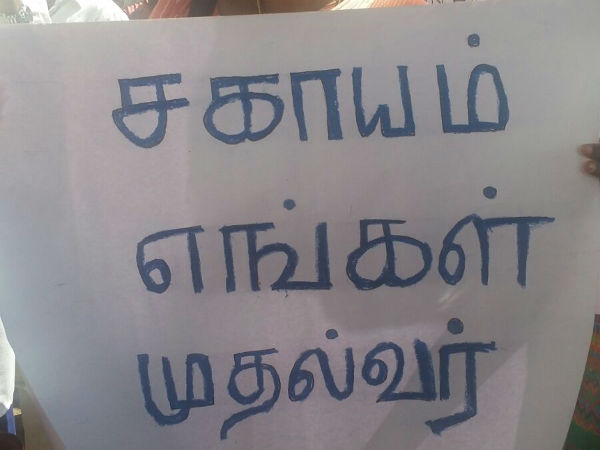 சகாயம்
எங்கள்
முதல்வர்